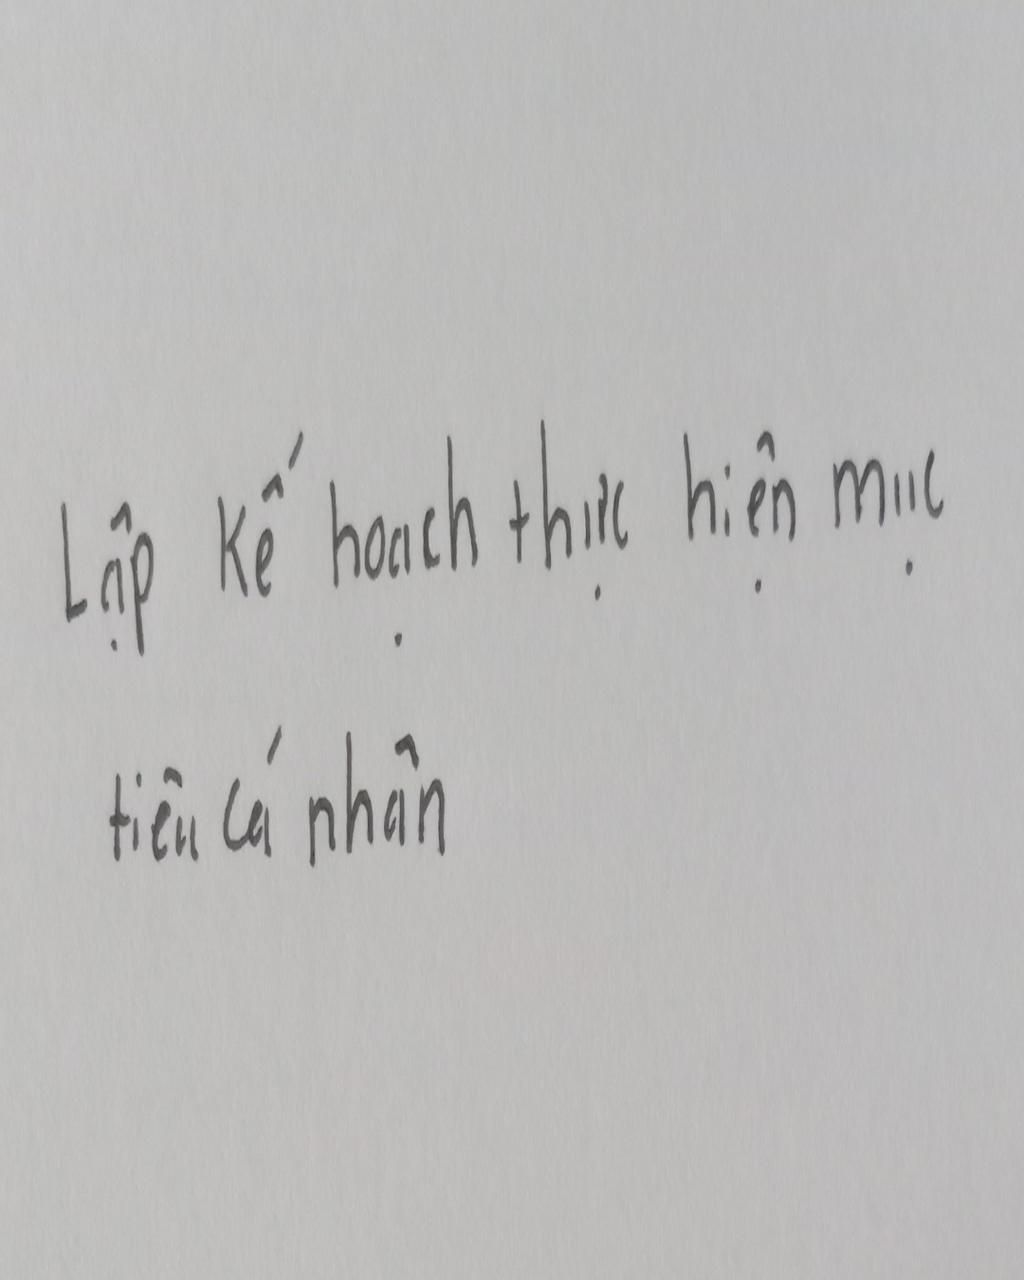 Lập kế hoạch thực hiện mục
tiêu cá nhân